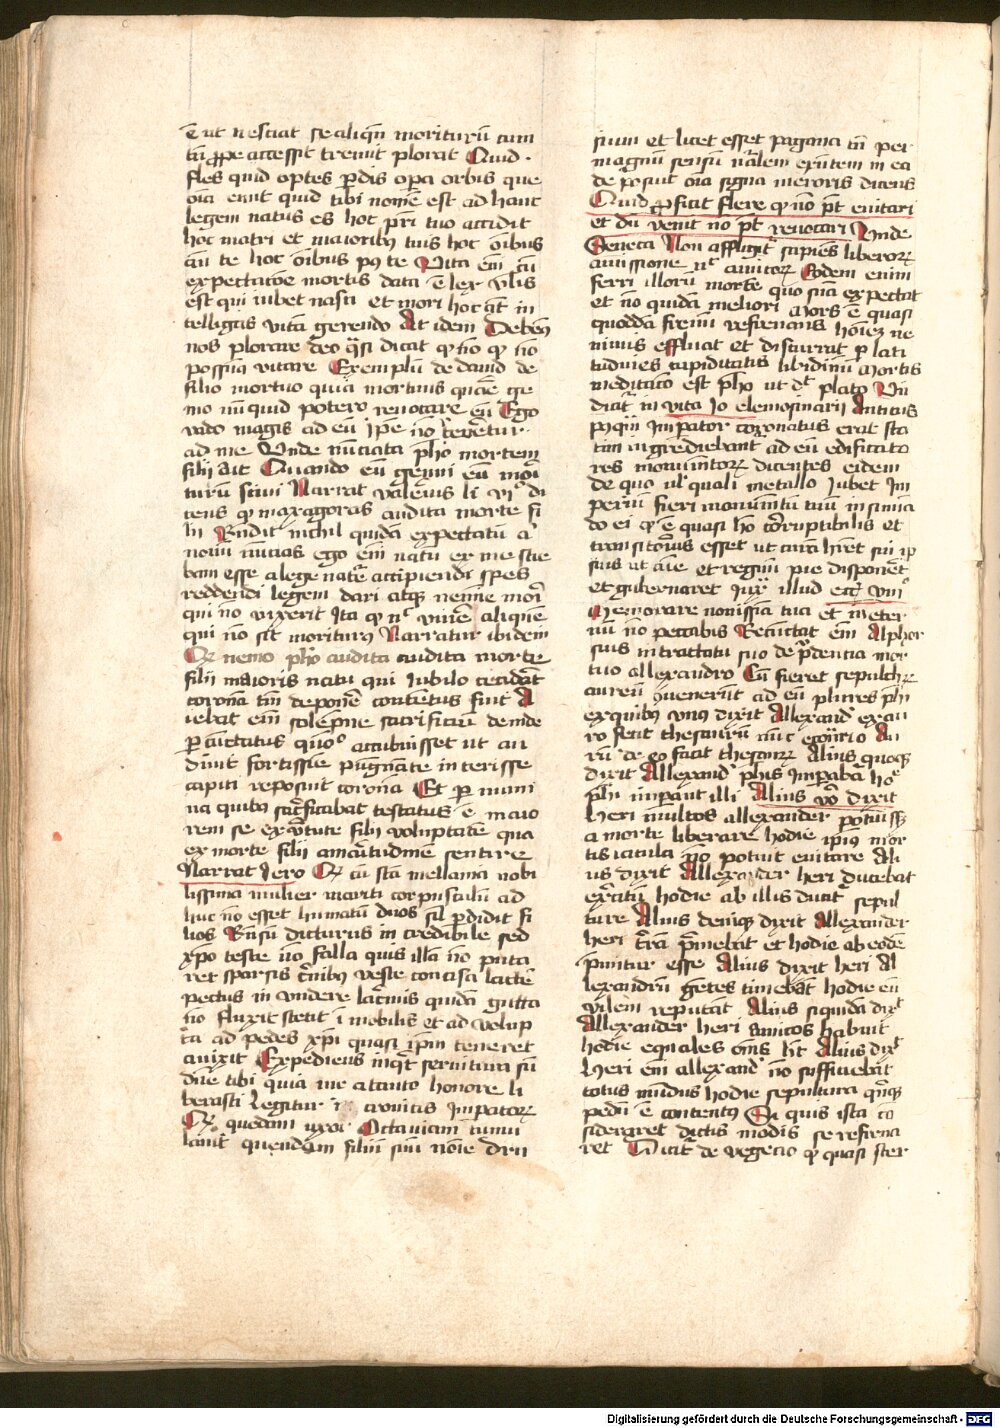 ē ut nesciat se aliqn̄ moriturū cum
tā ꝓpe accessit tremit plorat Quid
fles quid optes p̱dis opa orbis que
oīa erūt quid tibi nouū est ad hanc
legem natus es hoc pr̄i tuo accidit
hoc matri et maioribꝫ tuis hoc oībus
an̄ te hoc oībus pꝰ te Vita em̄ cū
exceptatōe mortis data ē lex vl̄is
est qui iubet nasci et mori hoc
telligas vitā gerendo At idem Debem̄
nos plorare deo qͣsi dicat ꝙ nō ꝙ nō
possim vitare Exemplū de dauid de
filio mortuo quia mortuus
mo nūquid potero reuocare eū Ego
vado magis ad eū ip̄e nō reuertetur
ad me Unde nūciata pho mortem
filij ait Quando eū genui eū mori
turū sciui Narrat valerius li vi di
cens ꝙ maxagoras audita morte fi
lij Rn̄dit nichil quidā expectatū a
nouū nūcias ego em̄ natū ex me scie
bam esse a lege nate accipiendi spes
reddendi legem dari atqꝫ nemīe mori
qui nō vixerit Ita ꝙ nͨ viuere aliquē
qui nō sit moriturꝰ Narratur ibidem
Qꝫ nemo pho audita audita morte
filij maioris natu qui
coronā tm̄ deponē contētus fuit A
iebat em̄ solēpne sacrificiū deinde
p̱cūctatus quoº occubuisset ut au
diuit fortissīe pugnāte interisse
capiti reposuit coronā Et p̱ numi
na quibꝫ sacͥficabat testatus ē maio
rem se ex v̄tute filij voluptatē qua
ex morte filij amaritudinē sentire
Narrat Jero Qꝫ cū sta mellania nobi
lissima mulier mariti corpusculū ad
huc nō esset humatū duos sil̄ p̱didit fi
lios Rn̄sū dicturus in credibile sed
xp̄o teste nō falla quis illā nō puta
ret sparsis cͥnibꝫ veste concisa lactē
pectus in vndere lacrimis quidā gutta
nō fluxit stetit ī mobilis et ad volup
tā ad pedes xp̄i quasi ip̄m teneret
auixit Expedieris inqͭ seruitura sū
dn̄e tibi quia me a tanto honore li
berasti Legitur ī cronicis Impatorꝫ
Qꝫ quedam uxor Octauiani tumu
lauit quendam filiū suū noīe dru
sium et licet esset pagana tn̄ per
magnū sensū nālem exn̄tem in ea
deposuit oīa signa meroris dicens
Quid ꝓficit flere ꝙ nō pͭ euitari
et dū venit nō pͭ reuocari Unde
Seneca Non affligitͬ sapiēs liberorꝫ
amissione nͨ amicorꝫ Eodem enim
ferri illorū morte quo suā expectat
et nō quidā meliori Mors ē quasi
quoddā frenū refrenans hoīez ne
nimis effluat et discurrat p̱ lati
tudines cupiditatis libidinū Mortis
meditatō est pho ut dͭ plato Un
dicitͬ in vita Jo elemosinarij Antiqus
pꝰ qm̄ Impator coronatus erat sta
tim ingrediebantͬ ad eū edificato
res monumētorꝫ dicentes eidem
de quo ul̄ quali metallo iubet Im
periū fieri monumētū tuū insinua
do ei ꝙ ē quasi hō corruptibilis et
transitorius esset ut curā hr̄et sui ip
sius ut aīe et regnū pie disponēt
et gubernaret Iuxͣ illud eccͥ viiº
Memorare nouissīa tua et ineter
nū nō peccabis Recitat em̄ Alphor
sius in tractatu suo de prudentia mor
tuo allexandro Cū fieret sepulchꝫ
aureū ꝯuenerūt ad eū plures phi
ex quibꝫ vnꝰ dixit Allexandͬ ex au
ro fecit thesaurū nūc econtrario Au
rū de eo facit thesaurꝫ Alius quoqꝫ
dixit Allexandͬ phis Impabat hoͩ
phi impant illi Alius vº dixit
Heri multos allexander potuissꝫ
a morte liberare hodie ipius mor
tis iacula nō potuit euitare Ali
us dixit Allexander heri ducebat
exercitū hodie ab illis ducitͬ sepul
ture Alius deniqꝫ dixit Allexander
heri terrā p̄mebat et hodie ab eodē
p̄mitur esse Alius dixit heri Al
lexandrū gētes timebāt hodie eū
vilem reputāt Alius siquidā dixͭ
Allexander heri amicos habuit
hodie equales oms̄ hͭ Alius dixͭ
Heri em̄ allexandͬ nō sufficiebat
totus mūdus hodie sepultura qͥnqꝫ
pedū ē contentus Si quis ista cō
sideraret dictis modis se refrena
ret Dicit de vegecio ꝙ quasi ster
Digitalisierung gefördert durch die Deutsche Forschungsgemeinschaft - DFG